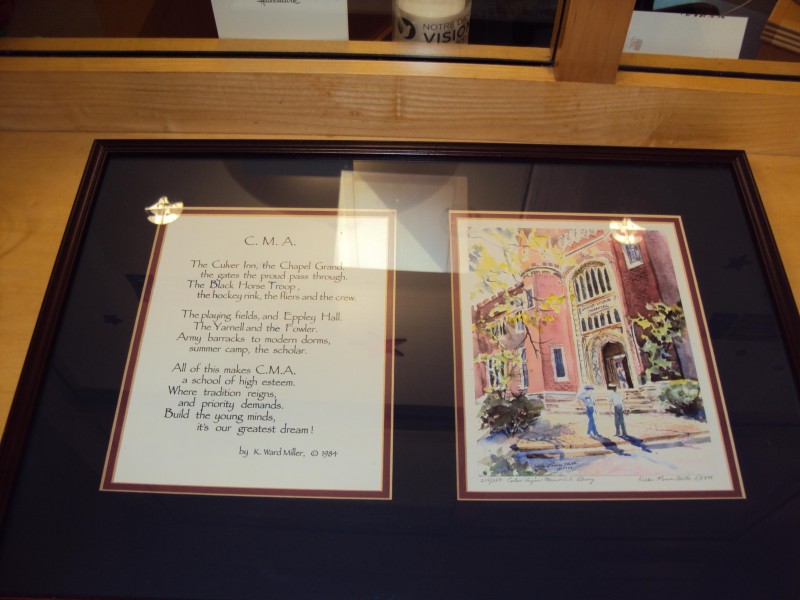 NOTRE DA
VISION
C. M. A.
The Culver Inn, the Chapel Grand,
the gates the proud pass through.
The Black Horse Troop,
the hockey rink, the fliers and the crew.
The playing fields, and Eppley Hall.
The Yarnell and the Fowler.
Army barracks to modern dorms,
summer camp, the scholar.
All of this makes C.M.A.
a school of high esteem.
Where tradition reigns,
and priority demands.
Build the young minds,
it's our greatest dream!
by K. Ward Miller, © 1984
Culver Memorial Library